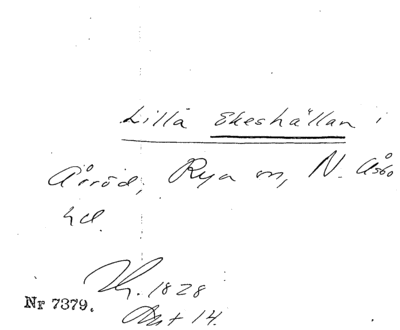 Lilla Ekeshällan i
Årröd, Rya sn, N. Åsbo
hd.
1828
Nr 7379.
Akt 14.